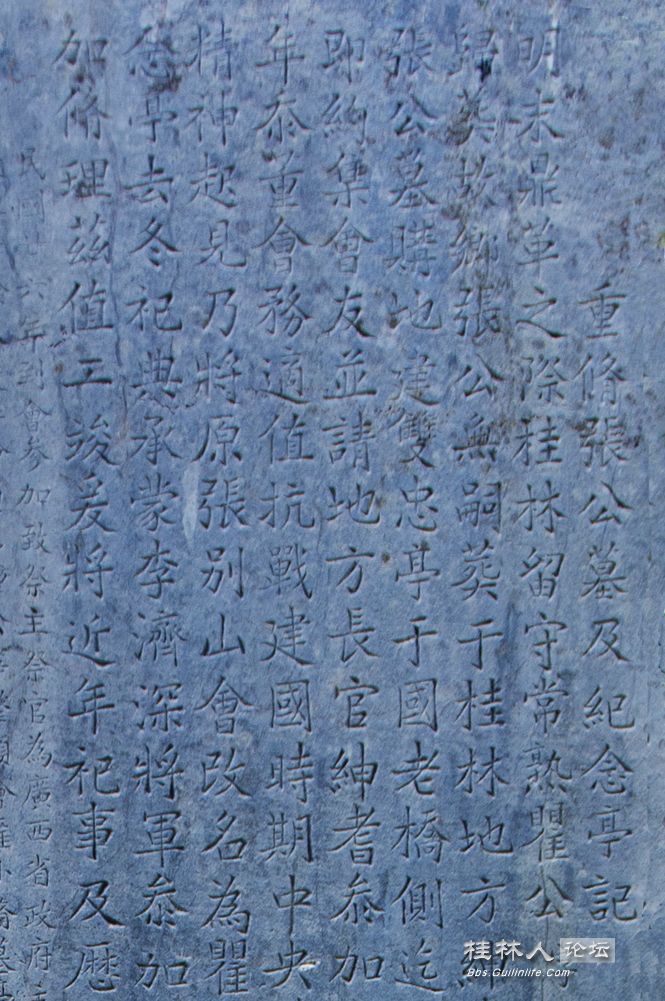 重脩張公墓及紀念亭記
明末鼎革之際桂林留守常熟瞿公
歸葬故鄉張公無嗣葬于桂林地方
張公墓購地建雙忠亭于國老橋側迄
即約集會友並請地方長官紳耆叅加
年忝董會務適值抗戰建國時期中央
精神起見乃將原張別山會改名為瞿
念亭去冬祀典承蒙李濟深將軍叅加
加脩理茲值工竣爰將近年祀事及歷
民國 六年到會参加致祭主祭官為廣西省政府主
桂林人论坛
Bbs.Guilinlife.Com